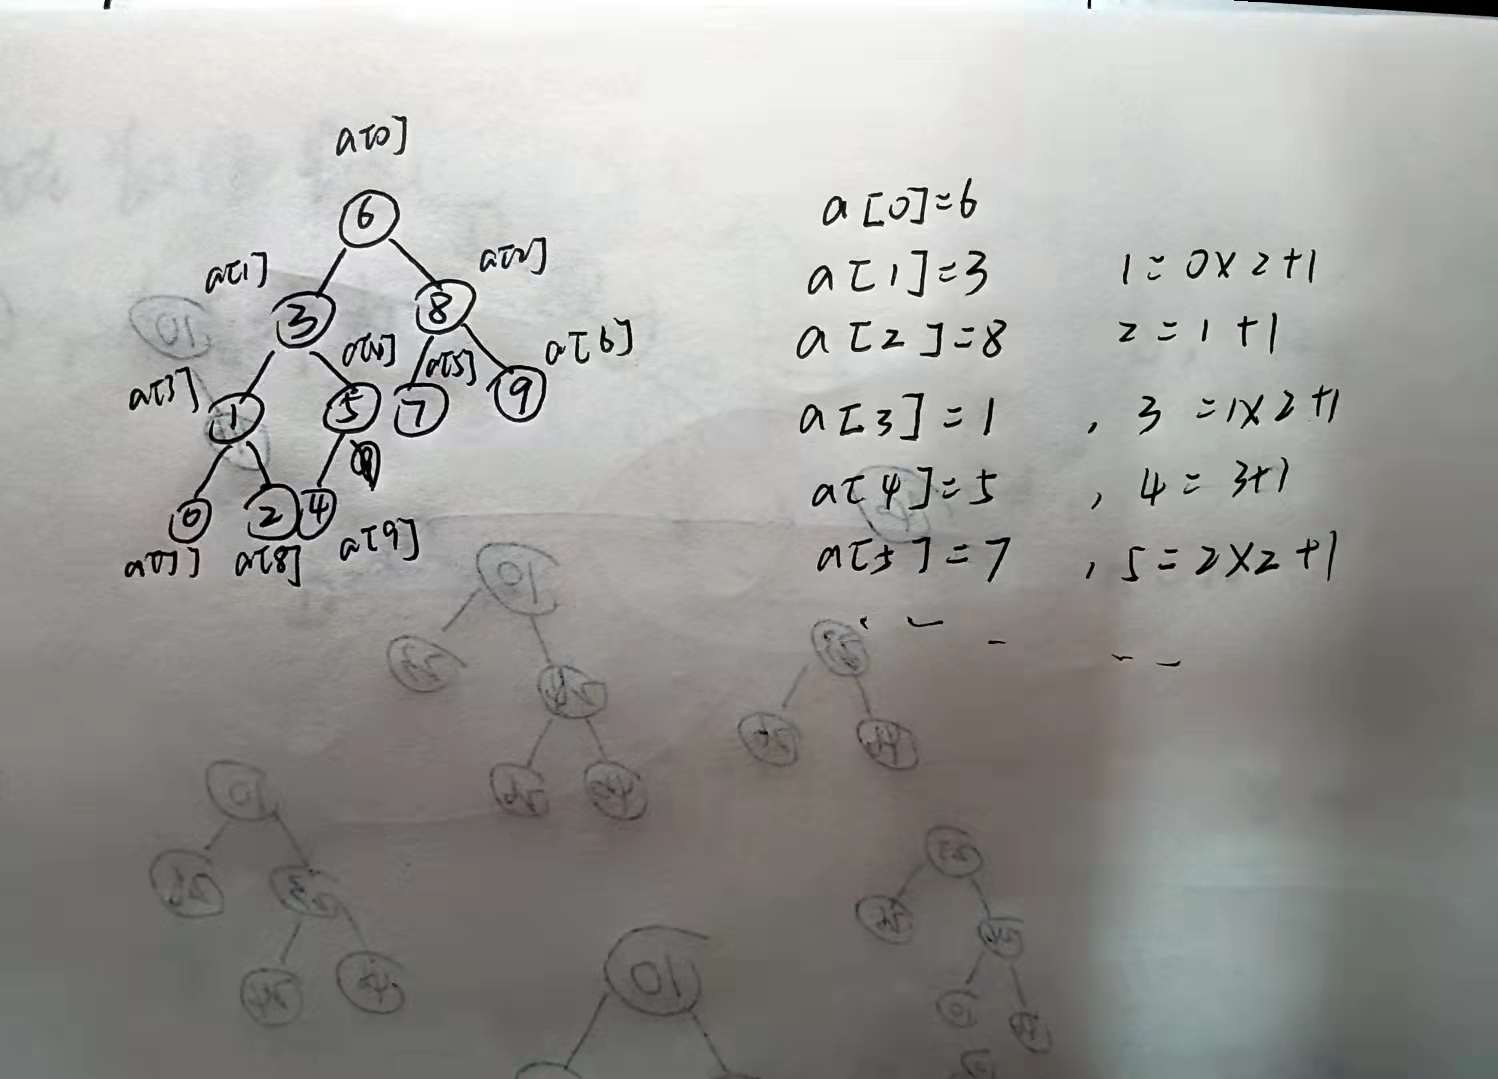 a[0]
6
a[1]
a[2]
3
8
a[3]
a[4]
a[5]
a[6]
1
5
7
9
0
2
4
a[7]
a[8]
a[9]
a[0]=6
a[1]=3 1=0×2+1
a[2]=8 2=1+1
a[3]=1 , 3=1×2+1
a[4]=5 , 4=3+1
a[5]=7 , 5=2×2+1